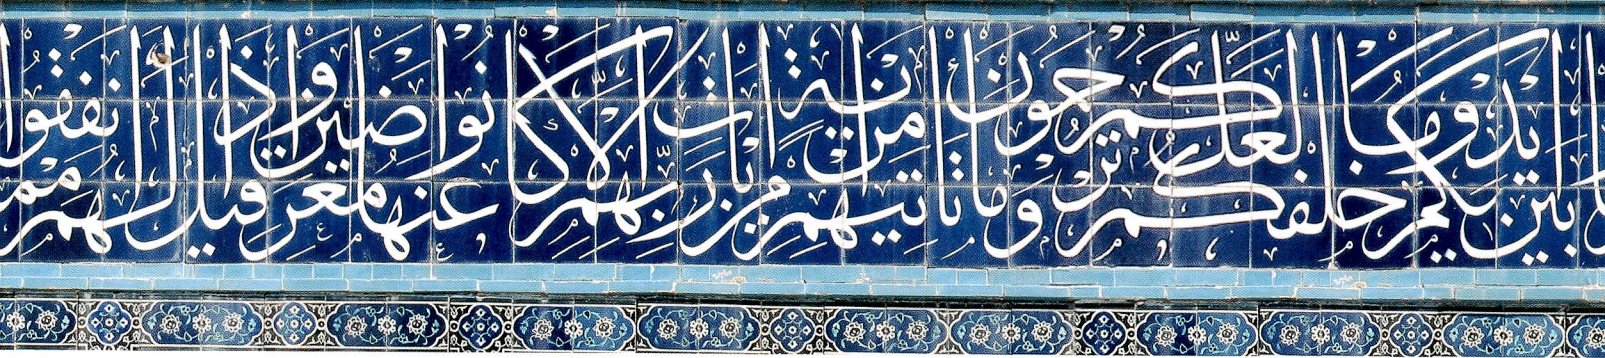 ما بين ايديكم وما خلفكم لعلكم ترحمون وما تأتيهم من اية من ايات ربهم الا كانوا عنها معرضين واذا قيل لهم انفقوا مما